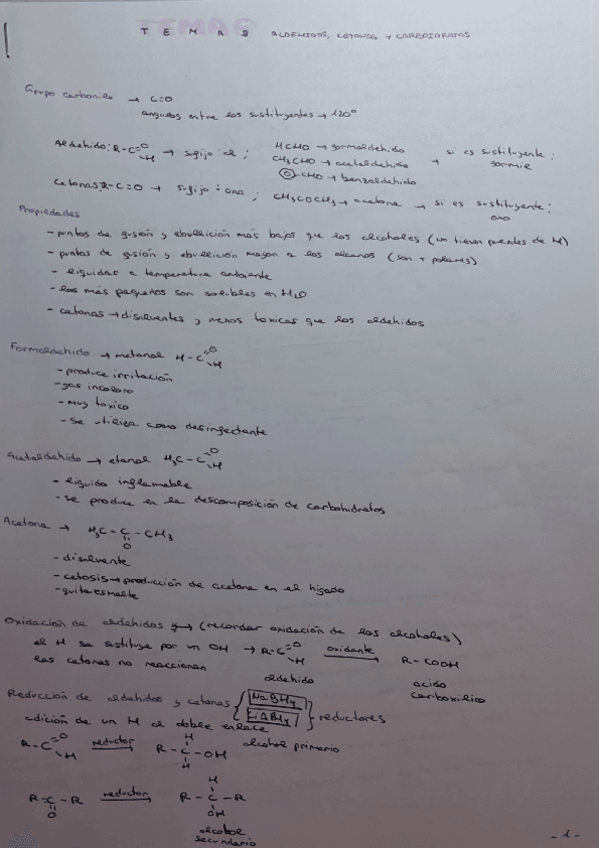 TEMA 8 ALDEHIDOS, CETONAS Y CARBOHIDRATOS
Grupo carbonilo → C=O
angulos entre los sustituyentes → 120°
Aldehido: R-C=O -H → sufijo: al; HCHO → formaldehido si es sustituyente:
CH3CHO → acetaldehido → formil
-CHO → benzaldehido
Cetonas: R-C=O → sufijo: ona; CH3COCH3 → acetona → si es sustituyente:
oxo
Propiedades
- puntos de fusión y ebullición más bajos que los alcoholes (no tienen puentes de H)
- puntos de fusión y ebullición mayor a los alcanos (son + polares)
- liquidas a temperatura ambiente
- los más pequeños son solubles en H2O
- cetonas → disolventes y menos toxicas que los aldehidos
Formaldehido → metanal H-C=O -H
- produce irritación
- gas incoloro
- muy toxico
- se utiliza como desinfectante
Acetaldehido → etanal H3C-C=O -H
- liquido inflamable
- se produce en la descomposición de carbohidratos
Acetona → H3C-C-CH3
O
- disolvente
- cetosis → producción de acetona en el higado
- quitaesmalte
Oxidación de aldehidos → (recordar oxidación de los alcoholes)
el H se sustituye por un OH → R-C=O -H oxidante → R-COOH
las cetonas no reaccionan aldehido acido
carboxilico
Reducción de aldehidos y cetonas { NaBH4 LiAlH4 } reductores
adición de un H al doble enlace
R-C=O -H reductor → R-C-OH H H alcohol primario
R-C-R O reductor → R-C-R H OH
alcohol
secundario
-1-